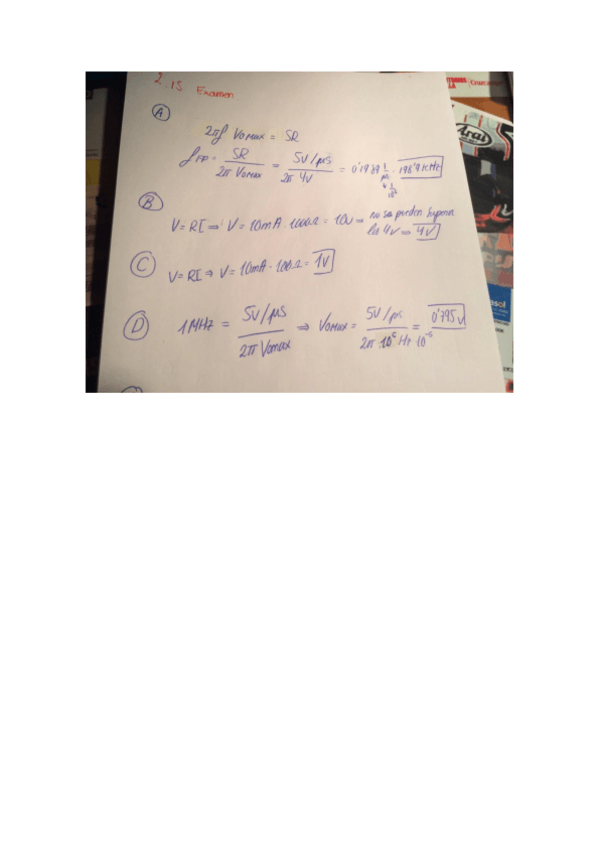 2.15 Examen
A
2πf Vomax = SR
fFP = SR / 2π Vomax = 5V/μS / 2π 4V = 0'1989 1/μs · 198'9 KHz
B
V = RI ⇒ V = 10mA · 1000Ω = 10V ⇒ no se pueden superar los 4V ⇒ 4V
C
V = RI ⇒ V = 10mA · 100Ω = 1V
D
1MHz = 5V/μS / 2π Vomax ⇒ Vomax = 5V/μs / 2π 10⁶ Hz · 10⁻⁶ = 0'795V
Arai